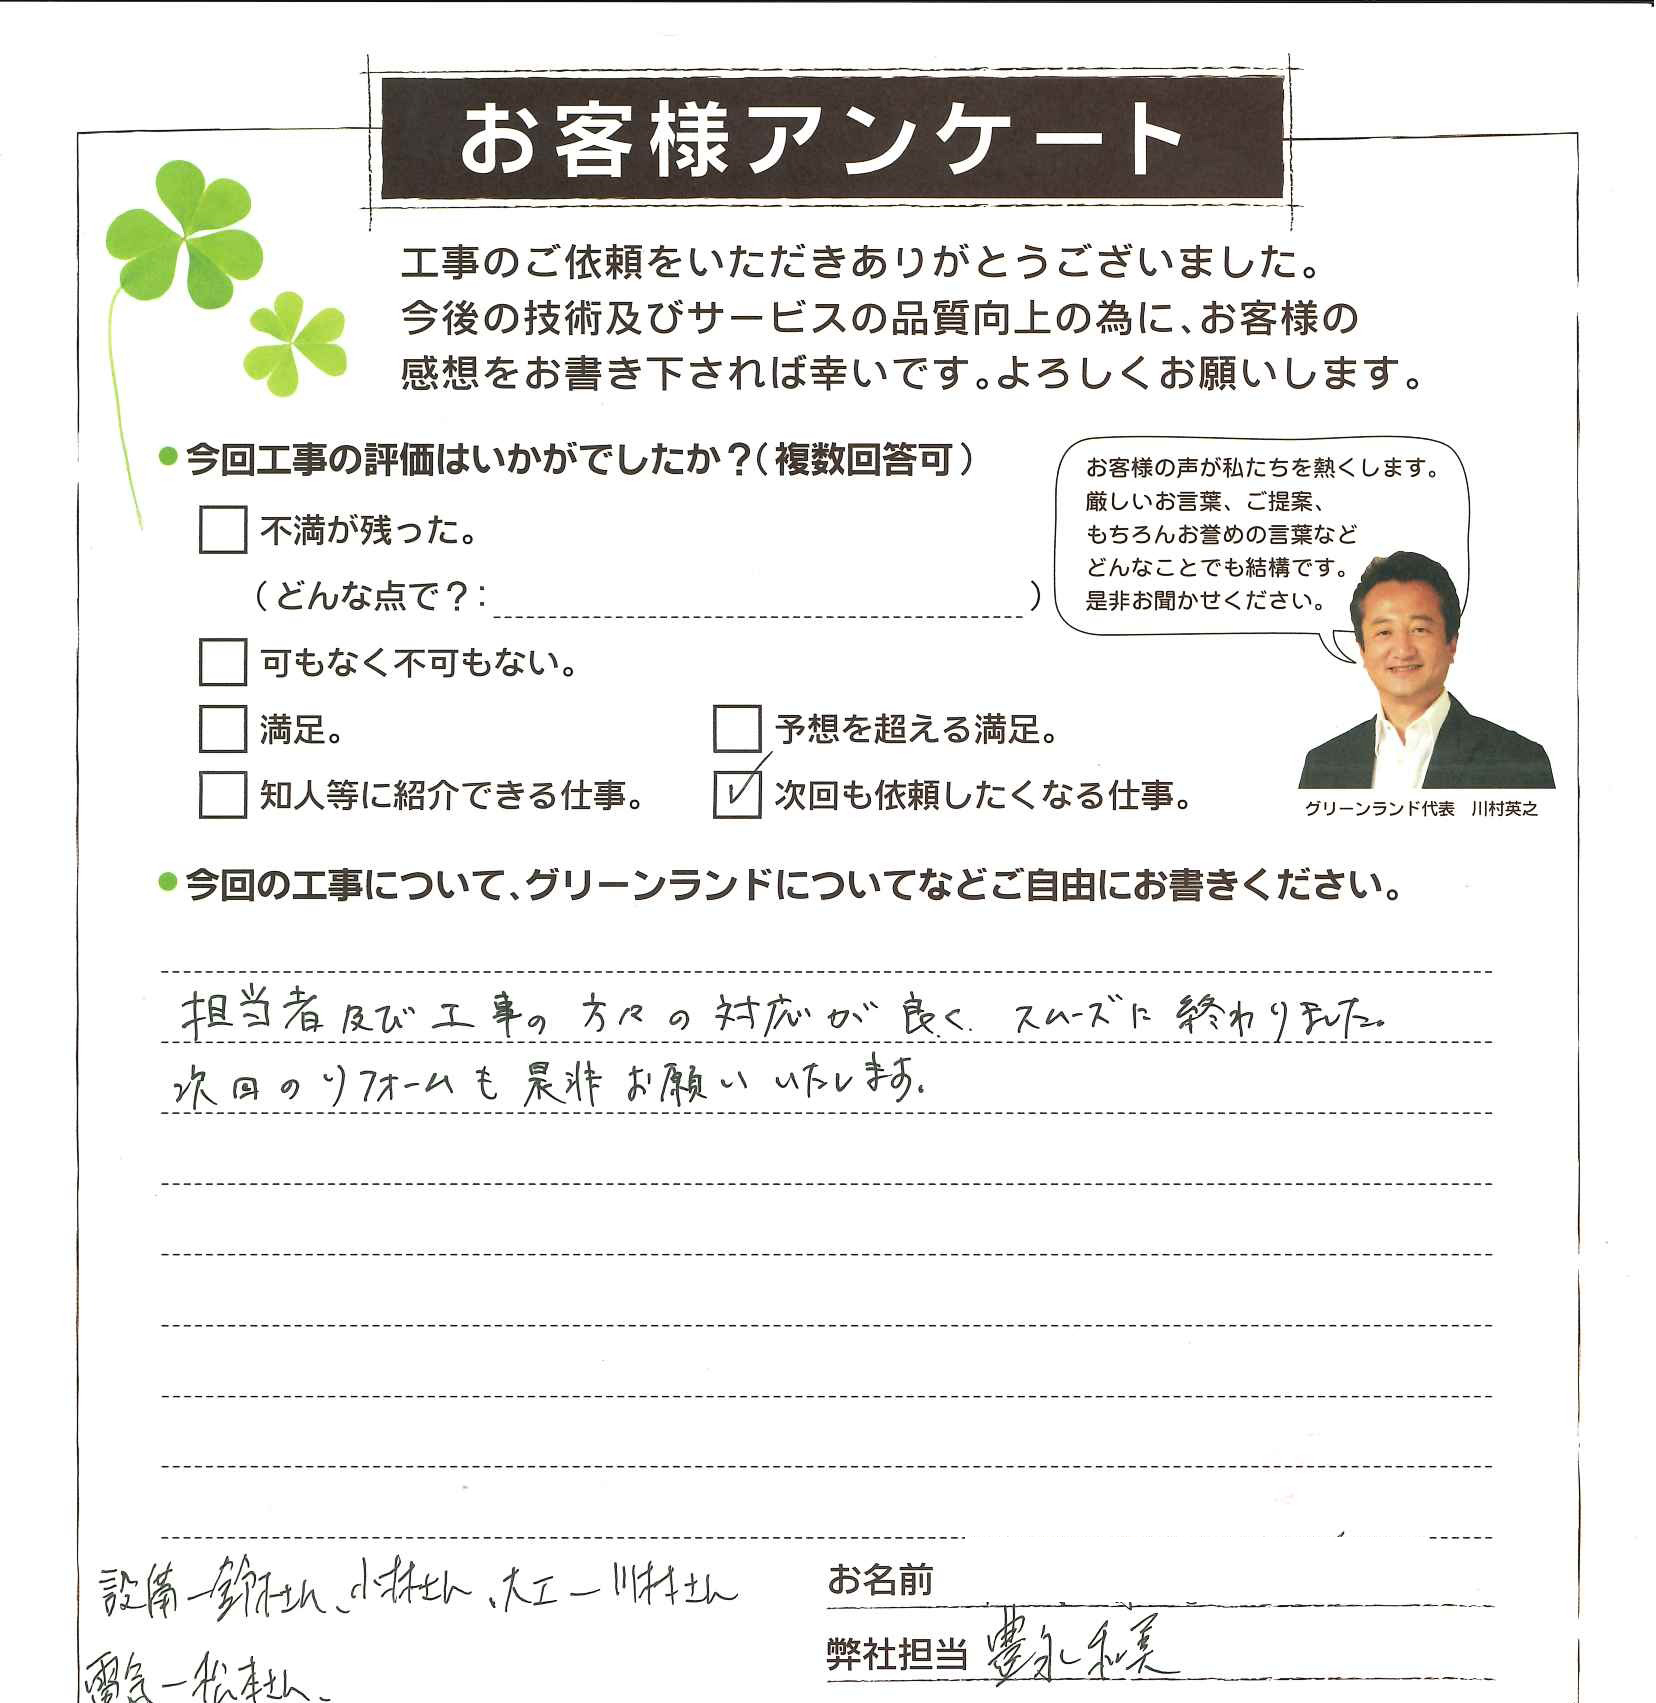 お客様アンケート
工事のご依頼をいただきありがとうございました。
今後の技術及びサービスの品質向上の為に、お客様の
感想をお書き下されば幸いです。よろしくお願いします。
●今回工事の評価はいかがでしたか？（複数回答可）
不満が残った。
（どんな点で？：　）
可もなく不可もない。
満足。
予想を超える満足。
知人等に紹介できる仕事。
次回も依頼したくなる仕事。
お客様の声が私たちを熱くします。
厳しいお言葉、ご提案、
もちろんお誉めの言葉など
どんなことでも結構です。
是非お聞かせください。
グリーンランド代表　川村英之
●今回の工事について、グリーンランドについてなどご自由にお書きください。
担当者及び工事の方々の対応が良く、スムーズに終わりました。
次回のリフォームも是非お願いいたします。
設備ー鈴木さん、小林さん、大工ー川村さん
電気ー松本さん、
お名前
弊社担当 豊永和美